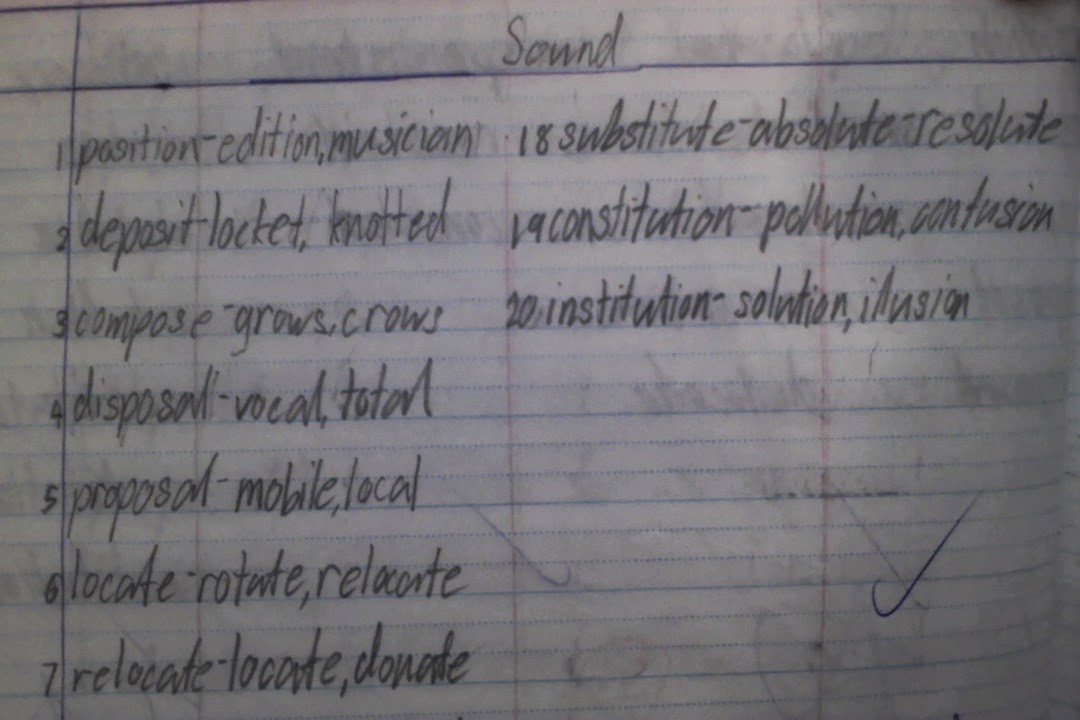 Sound
1 position-edition, musician
2 deposit-locket, knotted
3 compose-grows, crows
4 disposal-vocal, total
5 proposal-mobile, local
6 locate-rotate, relocate
7 relocate-locate, donate
18 substitute-absolute-resolute
19 constitution-pollution, confusion
20. institution-solution, illusion